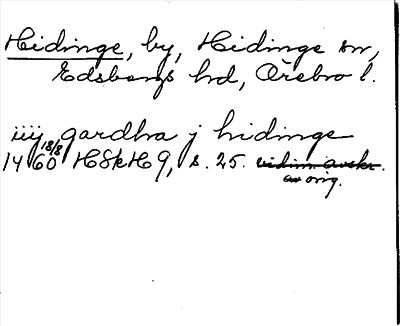 Hidinge, by, Hidinge sn,
Edsbergs hd, Örebro l.
iiij gardha j hidinge
1460 18/8 HSkH 9, s. 25. vidim. avskr.
av orig.